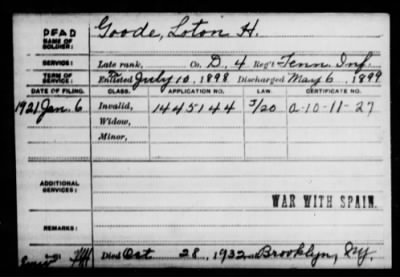 DEAD
NAME OF SOLDIER: Goode, Loton H.
SERVICE: Late rank, Co. D, 4 Reg't Tenn. Inf.
TERM OF SERVICE: Enlisted July 10, 1898 Discharged May 6, 1899
DATE OF FILING. CLASS. APPLICATION NO. LAW. CERTIFICATE NO.
1921 Jan. 6 Invalid, 1445144 3/20 a-10-11-27
Widow,
Minor,
ADDITIONAL SERVICES:
WAR WITH SPAIN.
REMARKS:
Died Oct 28, 1932 at Brooklyn, NY.